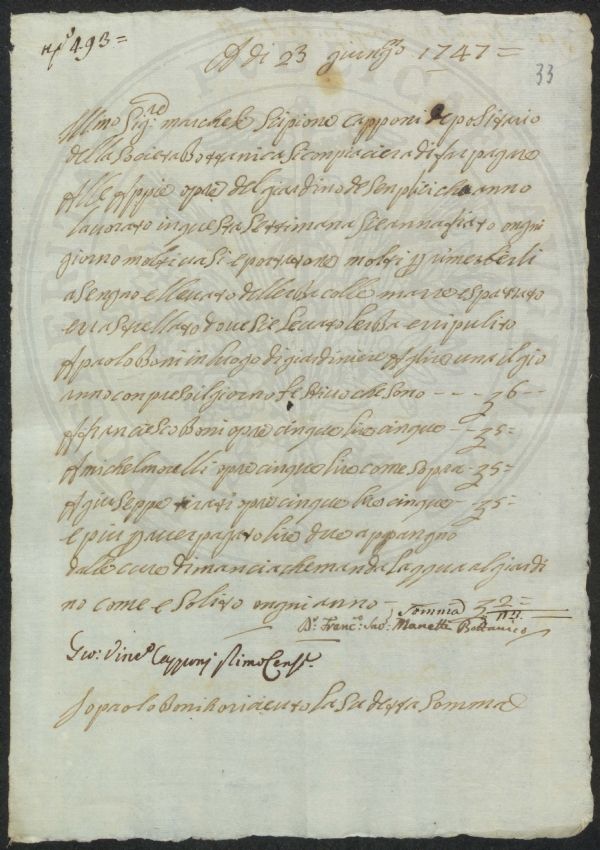 n.º 493 =
A di 23 giungº 1747 =
33
Illmo Sig.re marchese Scipione Capponi depositario
della Societa Bottanica Si conpiaciera di far pagare
Alle Appie opre del giardino de Senplici che anno
lavorato in questa Settimana Sie annafiato ongni
giorno molti vasi e portatone molti p rimeterli
a Sengno e llevato dellerba colle marre e Spazzato
e rastrellato dove Sie Seccato lerba e rripulito
A paolo Boni in luogo di giardiniere A lire una il gio
anno conpreso il giorno festivo che Sono - - - 6 -
A francesco Boni opre cinque lire cinque - - 5 =
A michel morelli opre cinque lire come Sopra - 5 =
A giuseppe opre cinque lire cinque - 5 =
e piu p aver pagato lire due a ppangno
dalle cure di mancia che manda lagqua al giardi
no come e Solito ongni anno - 2 =
Somma
D.r Franc.º Sav.º Manetti Bottanico
Gio: Vinc.º Capponj
Io paolo Boni o riceuto la Su detta Somma